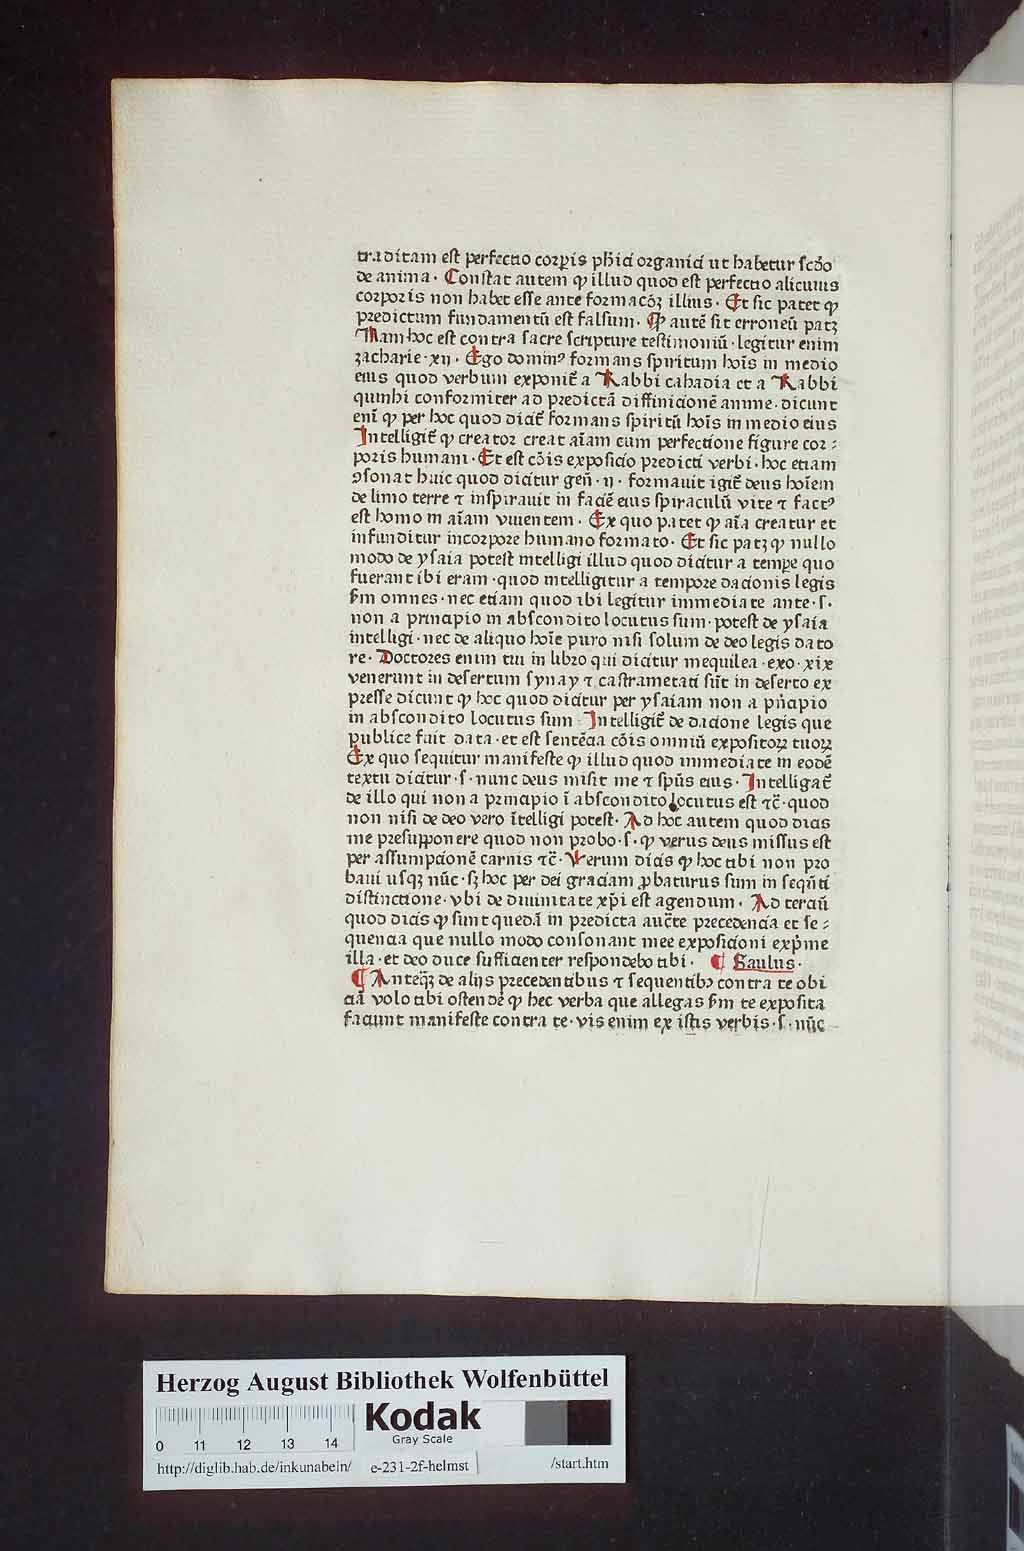 traditam est perfectio corꝑis phici organici ut habetur scd̄o
de anima · Constat autem ꝙ illud quod est perfectio alicuius
corporis non habet esse ante formacōꝫ illius · Et sic patet ꝙ
predictum fundamentū est falsum · Ꝙ autē sit erroneū patꝫ
Nam hoc est contra sacre scripture testimoniū · legitur enim
zacharie · xij · Ego dominꝰ formans spiritum hoīs in medio
eius quod verbum exponit̄ a Rabbi cahadia et a Rabbi
quinhi conformiter ad predictā diffinicionē anime · dicunt
eni̅ ꝙ per hoc quod dicit̄ formans spiritū hoīs in medio eius
Intelligit̄ ꝙ creator creat aīam cum perfectione figure cor⸗
poris humani · Et est cōis exposicio predicti verbi · hoc etiam
ꝯsonat huic quod dicitur gen̄ · ij · formauit igit̄ deus hoīem
de limo terre ⁊ inspirauit in faciē eius spiraculū vite ⁊ factꝰ
est homo in aīam viuentem · Ex quo patet ꝙ aīa creatur et
infunditur incorpore humano formato · Et sic patꝫ ꝙ nullo
modo de ysaia potest intelligi illud quod dicitur a tempe quo
fuerant ibi eram · quod intelligitur a tempore dacionis legis
ẜm omnes · nec etiam quod ibi legitur immediate ante · s ·
non a principio in abscondito locutus sum · potest de ysaia
intelligi · nec de aliquo hoīe puro nisi solum de deo legis dato
re · Doctores enim tui in libro qui dicitur mequilea · exo · xix
venerunt in desertum synay ⁊ castrametati sūt in deserto ex
presse dicunt ꝙ hoc quod dicitur per ysaiam non a pn̄cipio
in abscondito locutus sum · Intelligit̄ de dacione legis que
publice fuit data · et est sentēcia cōis omniū expositoꝝ tuoꝝ
Ex quo sequitur manifeste ꝙ illud quod immediate in eodē
textu dicitur · s · nunc deus misit me ⁊ spūs eius · Intelligat̄
de illo qui non a principio ī abscondito locutus est ⁊c̄ · quod
non nisi de deo vero ītelligi potest · Ad hoc autem quod dicis
me presupponere quod non probo · s · ꝙ verus deus missus est
per assumpcionē carnis ⁊c̄ · Verum dicis ꝙ hoc tibi non pro
baui usqꝫ nūc · sꝫ hoc per dei graciam ꝓbaturus sum in seqn̄ti
distinctione · vbi de diuinitate xp̄i est agendum · Ad terciū
quod dicis ꝙ sunt quedā in predicta auc̄te precedencia et se⸗
quencia que nullo modo consonant mee exposicioni exp̄me
illa · et deo duce sufficienter respondebo tibi · ¶ Saulus ·
¶ Anteqꝫ de alijs precedentibus ⁊ sequentibꝰ contra te obi
ciā volo tibi ostendē ꝙ hec verba que allegas ẜm te exposita
faciunt manifeste contra te · vis enim ex istis verbis · s · nūc
Herzog August Bibliothek Wolfenbüttel
Kodak
Gray Scale
0 11 12 13 14
http://diglib.hab.de/inkunabeln/ e-231-2f-helmst /start.htm